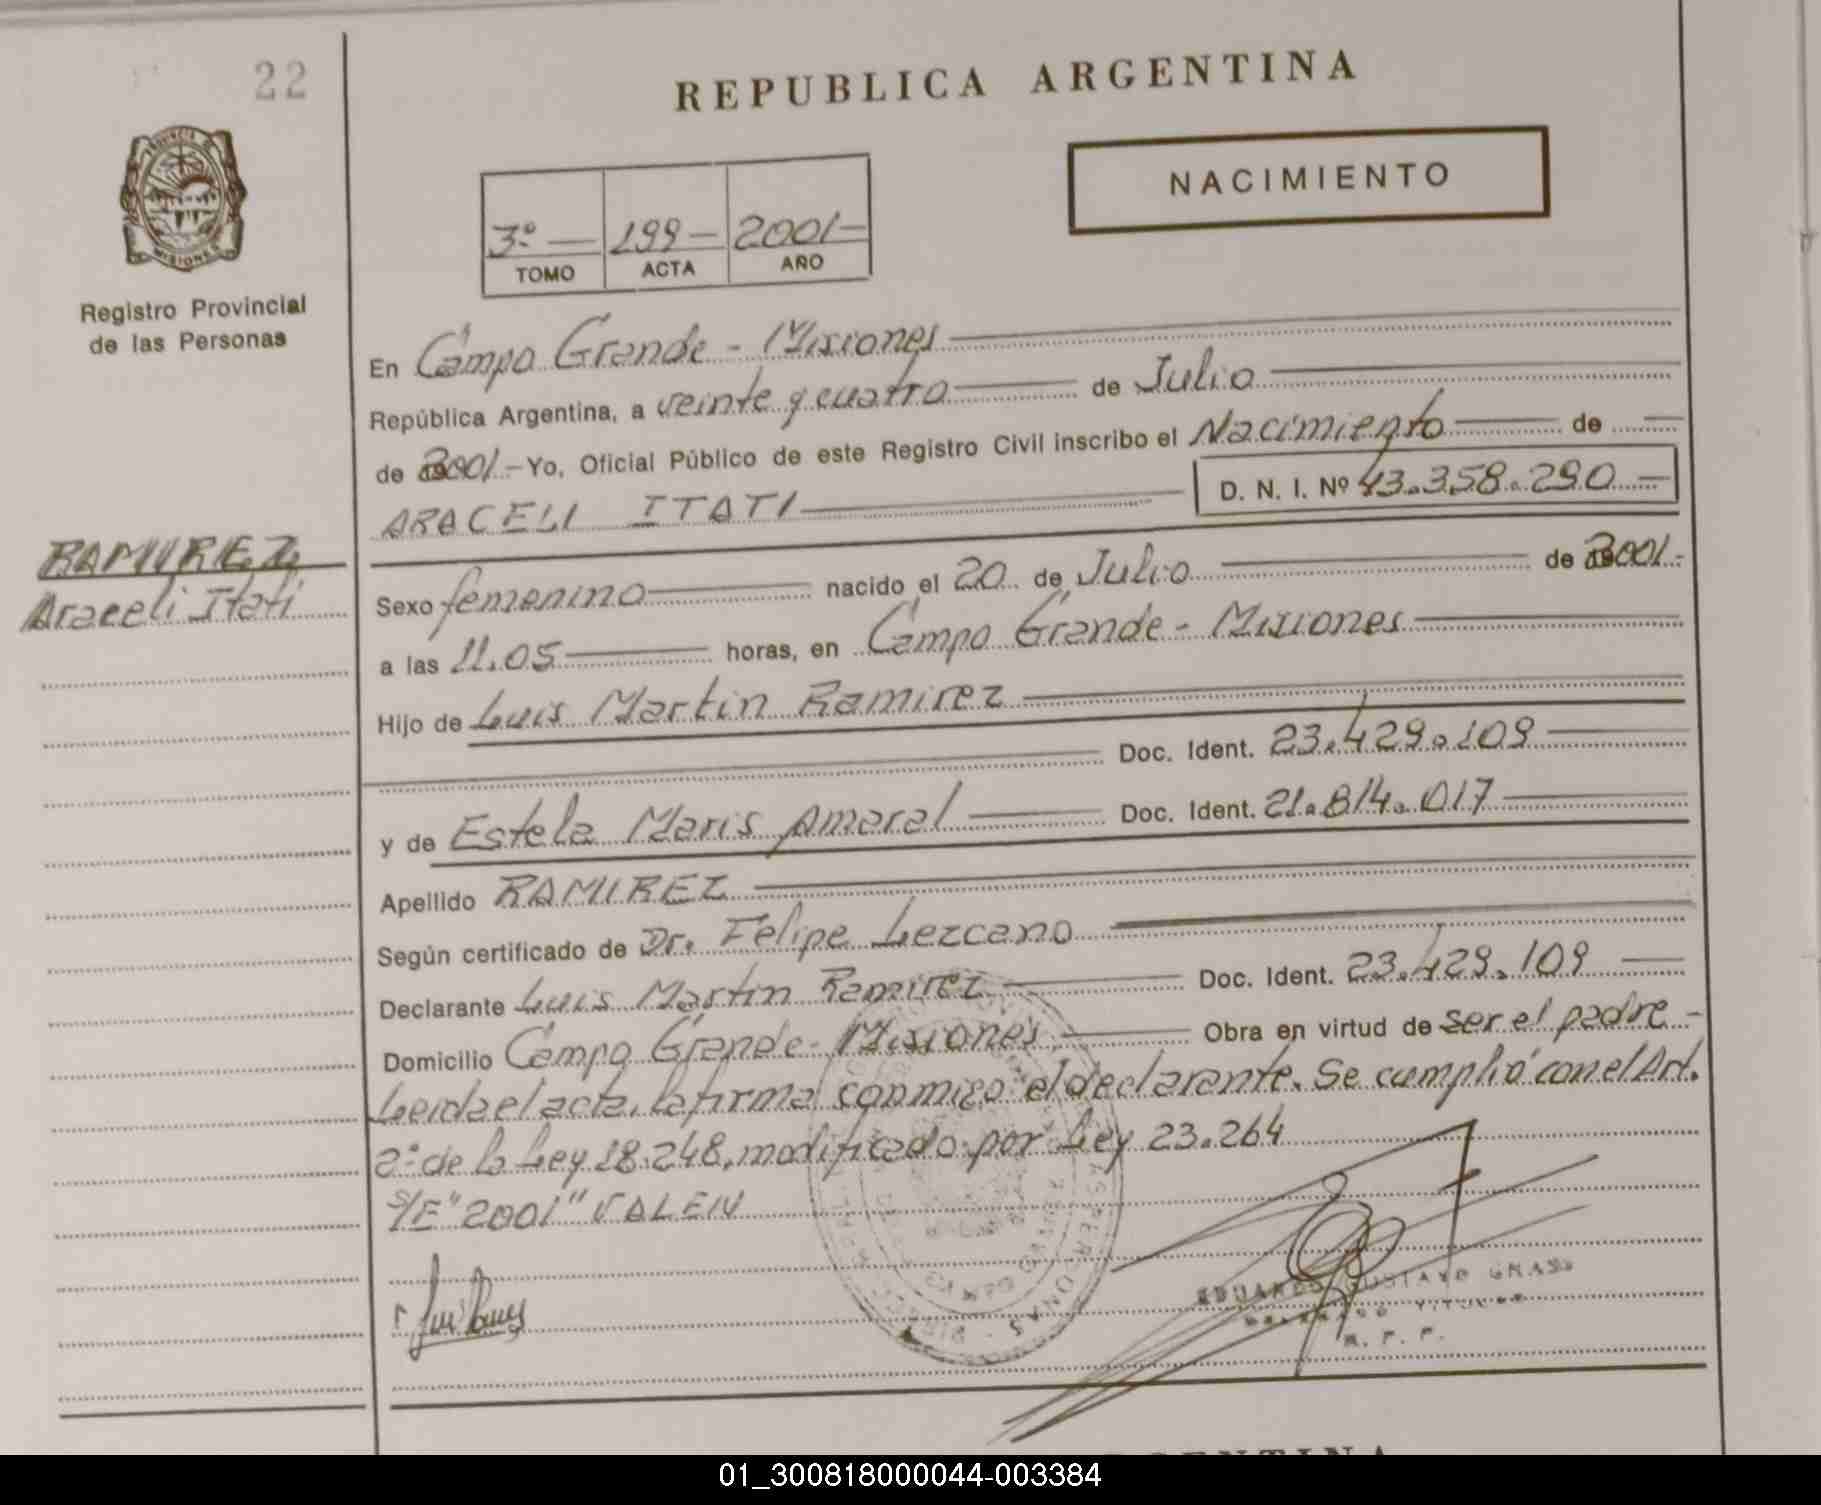 22
REPUBLICA ARGENTINA
NACIMIENTO
PROVINCIA DE
MISIONES
Registro Provincial
de las Personas
3º — 199 — 2001 —
TOMO ACTA AÑO
En Campo Grande - Misiones
República Argentina, a veinte y cuatro de Julio
de 2001.- Yo, Oficial Público de este Registro Civil inscribo el Nacimiento de
ARACELI ITATI D. N. I. Nº 43.358.290.—
RAMIREZ
Araceli Itati
Sexo femenino nacido el 20 de Julio de 2001.-
a las 11.05 horas, en Campo Grande - Misiones
Hijo de Luis Martin Ramirez
Doc. Ident. 23.429.109
y de Estela Maris Amaral Doc. Ident. 21.814.017
Apellido RAMIREZ
Según certificado de Dr. Felipe Lezcano
Declarante Luis Martin Ramirez Doc. Ident. 23.429.109
Domicilio Campo Grande - Misiones Obra en virtud de ser el padre -
Leida el acta, la firma conmigo el declarante. Se cumplió con el Art.
2º de la Ley 18.248, modificado por Ley 23.264
S/E "2001" VALEN
EDUARDO GUSTAVO
R. P. P.
01_300818000044-003384